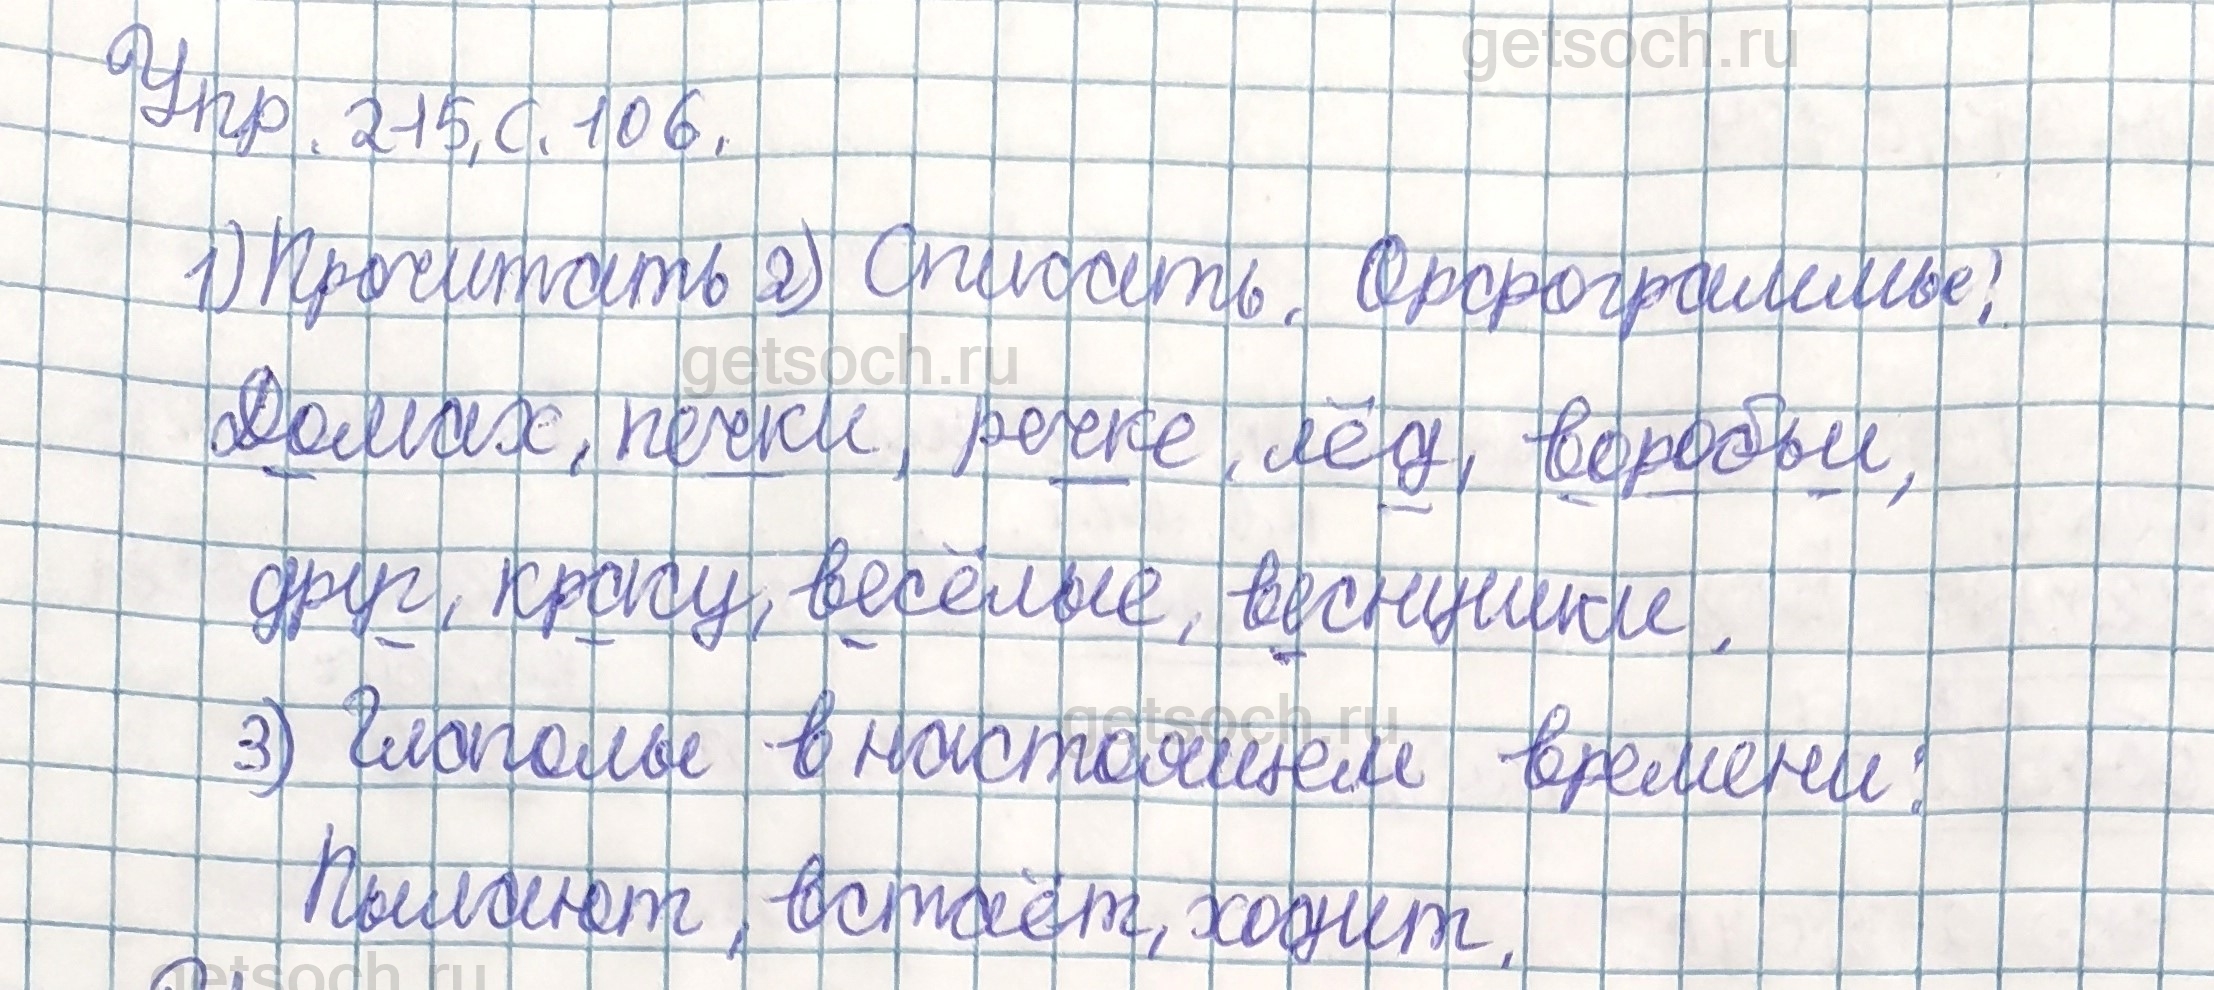 getsoch.ru
Упр. 215, с. 106.
1) Прочитать 2) Списать. Орфограммы:
getsoch.ru
Домах, печки, речке, лёд, воробьи,
друг, красу, весёлые, веснушки.
getsoch.ru
3) Глаголы в настоящем времени:
Пылают, встаёт, ходит.
getsoch.ru